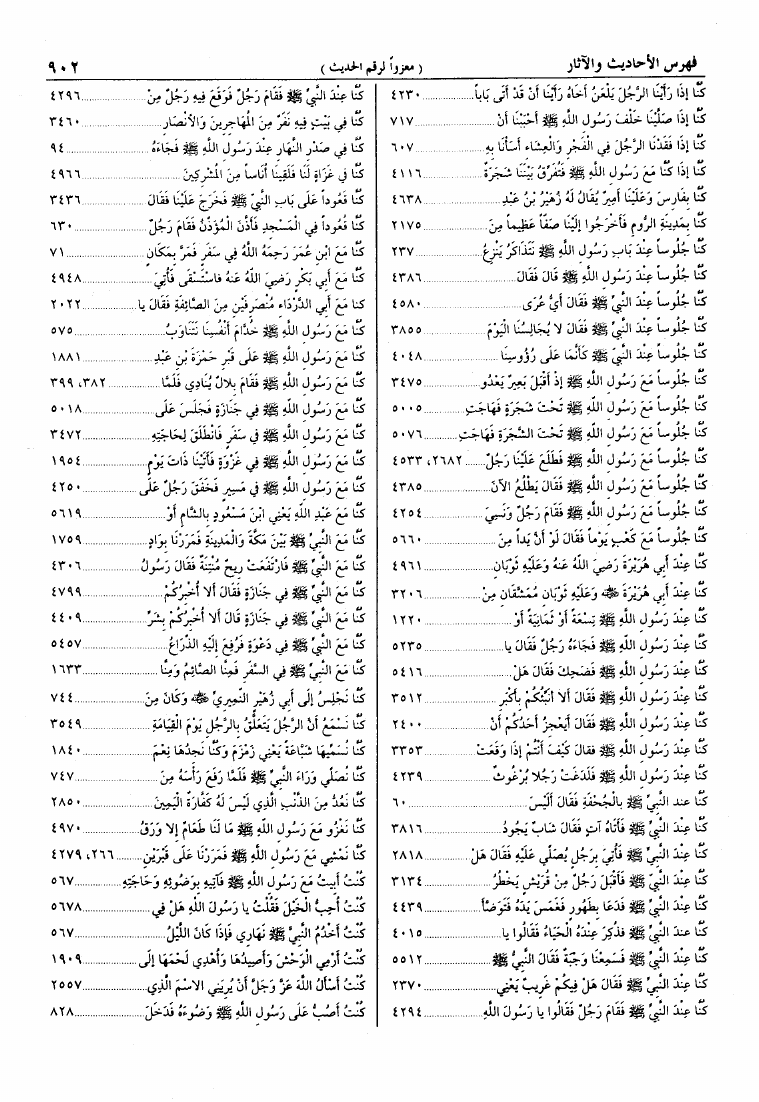 فهرس الأحاديث والآثار
( معزواً لرقم الحديث )
٩٠٢
كُنَّا إِذَا رَأَيْنَا الرَّجُلَ يَلْعَنُ أَخَاهُ رَأَيْنَا أَنْ قَدْ أَتَى بَاباً ..... ٤٢٣٠
كُنَّا إِذَا صَلَّيْنَا خَلْفَ رَسُولِ اللَّهِ ﷺ أَحْبَبْنَا أَنْ ..... ٧١٧
كُنَّا إِذَا فَقَدْنَا الرَّجُلَ فِي الْفَجْرِ وَالْعِشَاءِ أَسَأْنَا بِهِ ..... ٦٠٧
كُنَّا إِذَا كُنَّا مَعَ رَسُولِ اللَّهِ ﷺ فَتُفَرِّقُ بَيْنَنَا شَجَرَةٌ ..... ٤١١٦
كُنَّا بِفَارِسَ وَعَلَيْنَا أَمِيرٌ يُقَالُ لَهُ زُهَيْرُ بْنُ عَبْدِ ..... ٤٦٣٨
كُنَّا بِمَدِينَةِ الرُّومِ فَأَخْرَجُوا إِلَيْنَا صَفّاً عَظِيماً مِنَ ..... ٢١٧٥
كُنَّا جُلُوساً عِنْدَ بَابِ رَسُولِ اللَّهِ ﷺ نَتَذَاكَرُ يَنْزِعُ ..... ٢٣٧
كُنَّا جُلُوساً عِنْدَ رَسُولِ اللَّهِ ﷺ قَالَ فَقَالَ ..... ٤٣٨٦
كُنَّا جُلُوساً عِنْدَ النَّبِيِّ ﷺ فَقَالَ أَيُّ عُرَى ..... ٤٥٨٠
كُنَّا جُلُوساً عِنْدَ النَّبِيِّ ﷺ فَقَالَ لَا يُجَالِسُنَا الْيَوْمَ ..... ٣٨٥٥
كُنَّا جُلُوساً عِنْدَ النَّبِيِّ ﷺ كَأَنَّمَا عَلَى رُؤُوسِنَا ..... ٤٠٤٨
كُنَّا جُلُوساً مَعَ رَسُولِ اللَّهِ ﷺ إِذْ أَقْبَلَ بَعِيرٌ يَعْدُو ..... ٣٤٧٥
كُنَّا جُلُوساً مَعَ رَسُولِ اللَّهِ ﷺ تَحْتَ شَجَرَةٍ فَهَاجَتْ ..... ٥٠٠٥
كُنَّا جُلُوساً مَعَ رَسُولِ اللَّهِ ﷺ تَحْتَ الشَّجَرَةِ فَهَاجَتِ ..... ٥٠٧٦
كُنَّا جُلُوساً مَعَ رَسُولِ اللَّهِ ﷺ فَطَلَعَ عَلَيْنَا رَجُلٌ ..... ٢٦٨٢، ٤٥٣٣
كُنَّا جُلُوساً مَعَ رَسُولِ اللَّهِ ﷺ فَقَالَ يَطْلُعُ الآنَ ..... ٤٣٨٥
كُنَّا جُلُوساً مَعَ رَسُولِ اللَّهِ ﷺ فَقَامَ رَجُلٌ وَنَسِيَ ..... ٤٢٥٤
كُنَّا جُلُوساً مَعَ كَعْبٍ يَوْماً فَقَالَ لَوْ أَنَّ يَداً مِنَ ..... ٥٦٦٠
كُنَّا عِنْدَ أَبِي هُرَيْرَةَ رَضِيَ اللَّهُ عَنْهُ وَعَلَيْهِ ثَوْبَانِ ..... ٤٩٦١
كُنَّا عِنْدَ أَبِي هُرَيْرَةَ ﵁ وَعَلَيْهِ ثَوْبَانِ مُمَشَّقَانِ مِنْ ..... ٣٢٠٦
كُنَّا عِنْدَ رَسُولِ اللَّهِ ﷺ تِسْعَةً أَوْ ثَمَانِيَةً أَوْ ..... ١٢٢٠
كُنَّا عِنْدَ رَسُولِ اللَّهِ ﷺ فَجَاءَهُ رَجُلٌ فَقَالَ يَا ..... ٥٢٣٥
كُنَّا عِنْدَ رَسُولِ اللَّهِ ﷺ فَضَحِكَ فَقَالَ هَلْ ..... ٥٤١٦
كُنَّا عِنْدَ رَسُولِ اللَّهِ ﷺ فَقَالَ أَلَا أُنَبِّئُكُمْ بِأَكْبَرِ ..... ٣٥١٢
كُنَّا عِنْدَ رَسُولِ اللَّهِ ﷺ فَقَالَ أَيَعْجِزُ أَحَدُكُمْ أَنْ ..... ٢٤٠٠
كُنَّا عِنْدَ رَسُولِ اللَّهِ ﷺ فقال كَيْفَ أَنْتُمْ إِذَا وَقَعَتْ ..... ٣٣٥٣
كُنَّا عِنْدَ رَسُولِ اللَّهِ ﷺ فَلَدَغَتْ رَجُلاً بُرْغُوثٌ ..... ٤٢٣٩
كُنَّا عند النَّبِيِّ ﷺ بِالْجُحْفَةِ فَقَالَ أَلَيْسَ ..... ٦٠
كُنَّا عِنْدَ النَّبِيِّ ﷺ فَأَتَاهُ آتٍ فَقَالَ شَابٌّ يَجُودُ ..... ٣٨١٦
كُنَّا عِنْدَ النَّبِيِّ ﷺ فَأُتِيَ بِرَجُلٍ يُصَلِّي عَلَيْهِ فَقَالَ هَلْ ..... ٢٨١٨
كُنَّا عِنْدَ النَّبِيِّ ﷺ فَأَقْبَلَ رَجُلٌ مِنْ قُرَيْشٍ يَخْطُرُ ..... ٣١٣٤
كُنَّا عِنْدَ النَّبِيِّ ﷺ فَدَعَا بِطَهُورٍ فَغَمَسَ يَدَهُ فَتَوَضَّأَ ..... ٤٤٣٩
كُنَّا عِنْدَ النَّبِيِّ ﷺ فَذُكِرَ عِنْدَهُ الْحَيَاءُ فَقَالُوا يَا ..... ٤٠١٥
كُنَّا عِنْدَ النَّبِيِّ ﷺ فَسَمِعْنَا وَجْبَةً فَقَالَ النَّبِيُّ ﷺ ..... ٥٥١٢
كُنَّا عِنْدَ النَّبِيِّ ﷺ فَقَالَ هَلْ فِيكُمْ غَرِيبٌ يَعْنِي ..... ٢٣٧٠
كُنَّا عِنْدَ النَّبِيِّ ﷺ فَقَامَ رَجُلٌ فَقَالُوا يَا رَسُولَ اللَّهِ ..... ٤٢٩٤
كُنَّا عِنْدَ النَّبِيِّ ﷺ فَقَامَ رَجُلٌ فَوَقَعَ فِيهِ رَجُلٌ مِنْ ..... ٤٢٩٦
كُنَّا فِي بَيْتٍ فِيهِ نَفَرٌ مِنَ الْمُهَاجِرِينَ وَالْأَنْصَارِ ..... ٣٤٦٠
كُنَّا فِي صَدْرِ النَّهَارِ عِنْدَ رَسُولِ اللَّهِ ﷺ فَجَاءَهُ ..... ٩٤
كُنَّا فِي غَزَاةٍ لَنَا فَلَقِينَا أُنَاساً مِنَ الْمُشْرِكِينَ ..... ٤٩٦٦
كُنَّا قُعُوداً عَلَى بَابِ النَّبِيِّ ﷺ فَخَرَجَ عَلَيْنَا فَقَالَ ..... ٣٤٣٦
كُنَّا قُعُوداً فِي الْمَسْجِدِ فَأَذَّنَ الْمُؤَذِّنُ فَقَامَ رَجُلٌ ..... ٦٣٠
كُنَّا مَعَ ابْنِ عُمَرَ رَحِمَهُ اللَّهُ فِي سَفَرٍ فَمَرَّ بِمَكَانٍ ..... ٧١
كُنَّا مَعَ أَبِي بَكْرٍ رَضِيَ اللَّهُ عَنْهُ فَاسْتَسْقَى فَأُتِيَ ..... ٤٩٤٨
كُنَّا مَعَ أَبِي الدَّرْدَاءِ مُنْصَرِفِينَ مِنَ الصَّائِفَةِ فَقَالَ يَا ..... ٢٠٢٢
كُنَّا مَعَ رَسُولِ اللَّهِ ﷺ خُدَّامَ أَنْفُسِنَا نَتَنَاوَبُ ..... ٥٧٥
كُنَّا مَعَ رَسُولِ اللَّهِ ﷺ عَلَى قَبْرِ حَمْزَةَ بْنِ عَبْدِ ..... ١٨٨١
كُنَّا مَعَ رَسُولِ اللَّهِ ﷺ فَقَامَ بِلَالٌ يُنَادِي فَلَمَّا ..... ٣٨٢، ٣٩٩
كُنَّا مَعَ رَسُولِ اللَّهِ ﷺ فِي جَنَازَةٍ فَجَلَسَ عَلَى ..... ٥٠١٨
كُنَّا مَعَ رَسُولِ اللَّهِ ﷺ فِي سَفَرٍ فَانْطَلَقَ لِحَاجَتِهِ ..... ٣٤٧٢
كُنَّا مَعَ رَسُولِ اللَّهِ ﷺ فِي غَزْوَةٍ فَأَتَيْنَا ذَاتَ يَوْمٍ ..... ١٩٥٤
كُنَّا مَعَ رَسُولِ اللَّهِ ﷺ فِي مَسِيرٍ فَخَفَقَ رَجُلٌ عَلَى ..... ٤٢٥٠
كُنَّا مَعَ عَبْدِ اللَّهِ يَعْنِي ابْنَ مَسْعُودٍ بِالشَّامِ أَوْ ..... ٥٦١٩
كُنَّا مَعَ النَّبِيِّ ﷺ بَيْنَ مَكَّةَ وَالْمَدِينَةِ فَمَرَرْنَا بِوَادٍ ..... ١٧٥٩
كُنَّا مَعَ النَّبِيِّ ﷺ فَارْتَفَعَتْ رِيحٌ مُنْتِنَةٌ فَقَالَ رَسُولُ ..... ٤٣٠٦
كُنَّا مَعَ النَّبِيِّ ﷺ فِي جَنَازَةٍ فَقَالَ أَلَا أُخْبِرُكُمْ ..... ٤٧٩٩
كُنَّا مَعَ النَّبِيِّ ﷺ فِي جَنَازَةٍ قَالَ أَلَا أُخْبِرُكُمْ بِشَرِّ ..... ٤٤٠٩
كُنَّا مَعَ النَّبِيِّ ﷺ فِي دَعْوَةٍ فَرُفِعَ إِلَيْهِ الذِّرَاعُ ..... ٥٤٥٧
كُنَّا مَعَ النَّبِيِّ ﷺ فِي السَّفَرِ فَمِنَّا الصَّائِمُ وَمِنَّا ..... ١٦٣٣
كُنَّا نَجْلِسُ إِلَى أَبِي زُهَيْرٍ النُّمَيْرِيِّ ﵁ وَكَانَ مِنَ ..... ٧٤٤
كُنَّا نَسْمَعُ أَنَّ الرَّجُلَ يَتَعَلَّقُ بِالرَّجُلِ يَوْمَ الْقِيَامَةِ ..... ٣٥٤٩
كُنَّا نُسَمِّيهَا شَبَّاعَةَ يَعْنِي زَمْزَمَ وَكُنَّا نَجِدُهَا نِعْمَ ..... ١٨٤٠
كُنَّا نُصَلِّي وَرَاءَ النَّبِيِّ ﷺ فَلَمَّا رَفَعَ رَأْسَهُ مِنَ ..... ٧٤٧
كُنَّا نَعُدُّ مِنَ الذَّنْبِ الَّذِي لَيْسَ لَهُ كَفَّارَةٌ الْيَمِينَ ..... ٢٨٥٠
كُنَّا نَغْزُو مَعَ رَسُولِ اللَّهِ ﷺ مَا لَنَا طَعَامٌ إِلَّا وَرَقُ ..... ٤٩٧٠
كُنَّا نَمْشِي مَعَ رَسُولِ اللَّهِ ﷺ فَمَرَرْنَا عَلَى قَبْرَيْنِ ..... ٢٦٦، ٤٢٧٩
كُنْتُ أَبِيتُ مَعَ رَسُولِ اللَّهِ ﷺ فَآتِيهِ بِوَضُوئِهِ وَحَاجَتِهِ ..... ٥٦٧
كُنْتُ أُحِبُّ الْخَيْلَ فَقُلْتُ يَا رَسُولَ اللَّهِ هَلْ فِي ..... ٥٦٧٨
كُنْتُ أَخْدُمُ النَّبِيَّ ﷺ نَهَارِي فَإِذَا كَانَ اللَّيْلُ ..... ٥٦٧
كُنْتُ أَرْمِي الْوَحْشَ وَأَصِيدُهَا وَأُهْدِي لَحْمَهَا إِلَى ..... ١٩٠٩
كُنْتُ أَسْأَلُ اللَّهَ عَزَّ وَجَلَّ أَنْ يُرِيَنِي الِاسْمَ الَّذِي ..... ٢٥٥٧
كُنْتُ أَصُبُّ عَلَى رَسُولِ اللَّهِ ﷺ وَضُوءَهُ فَدَخَلَ ..... ٨٢٨